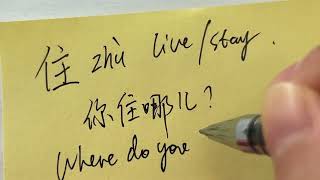 住 zhù live/stay.
你住哪儿?
Where do you